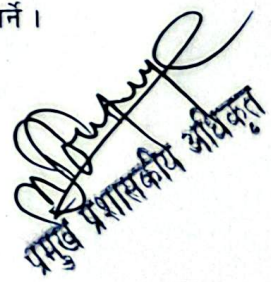 र्ने ।
प्रमुख प्रशासकीय अधिकृत